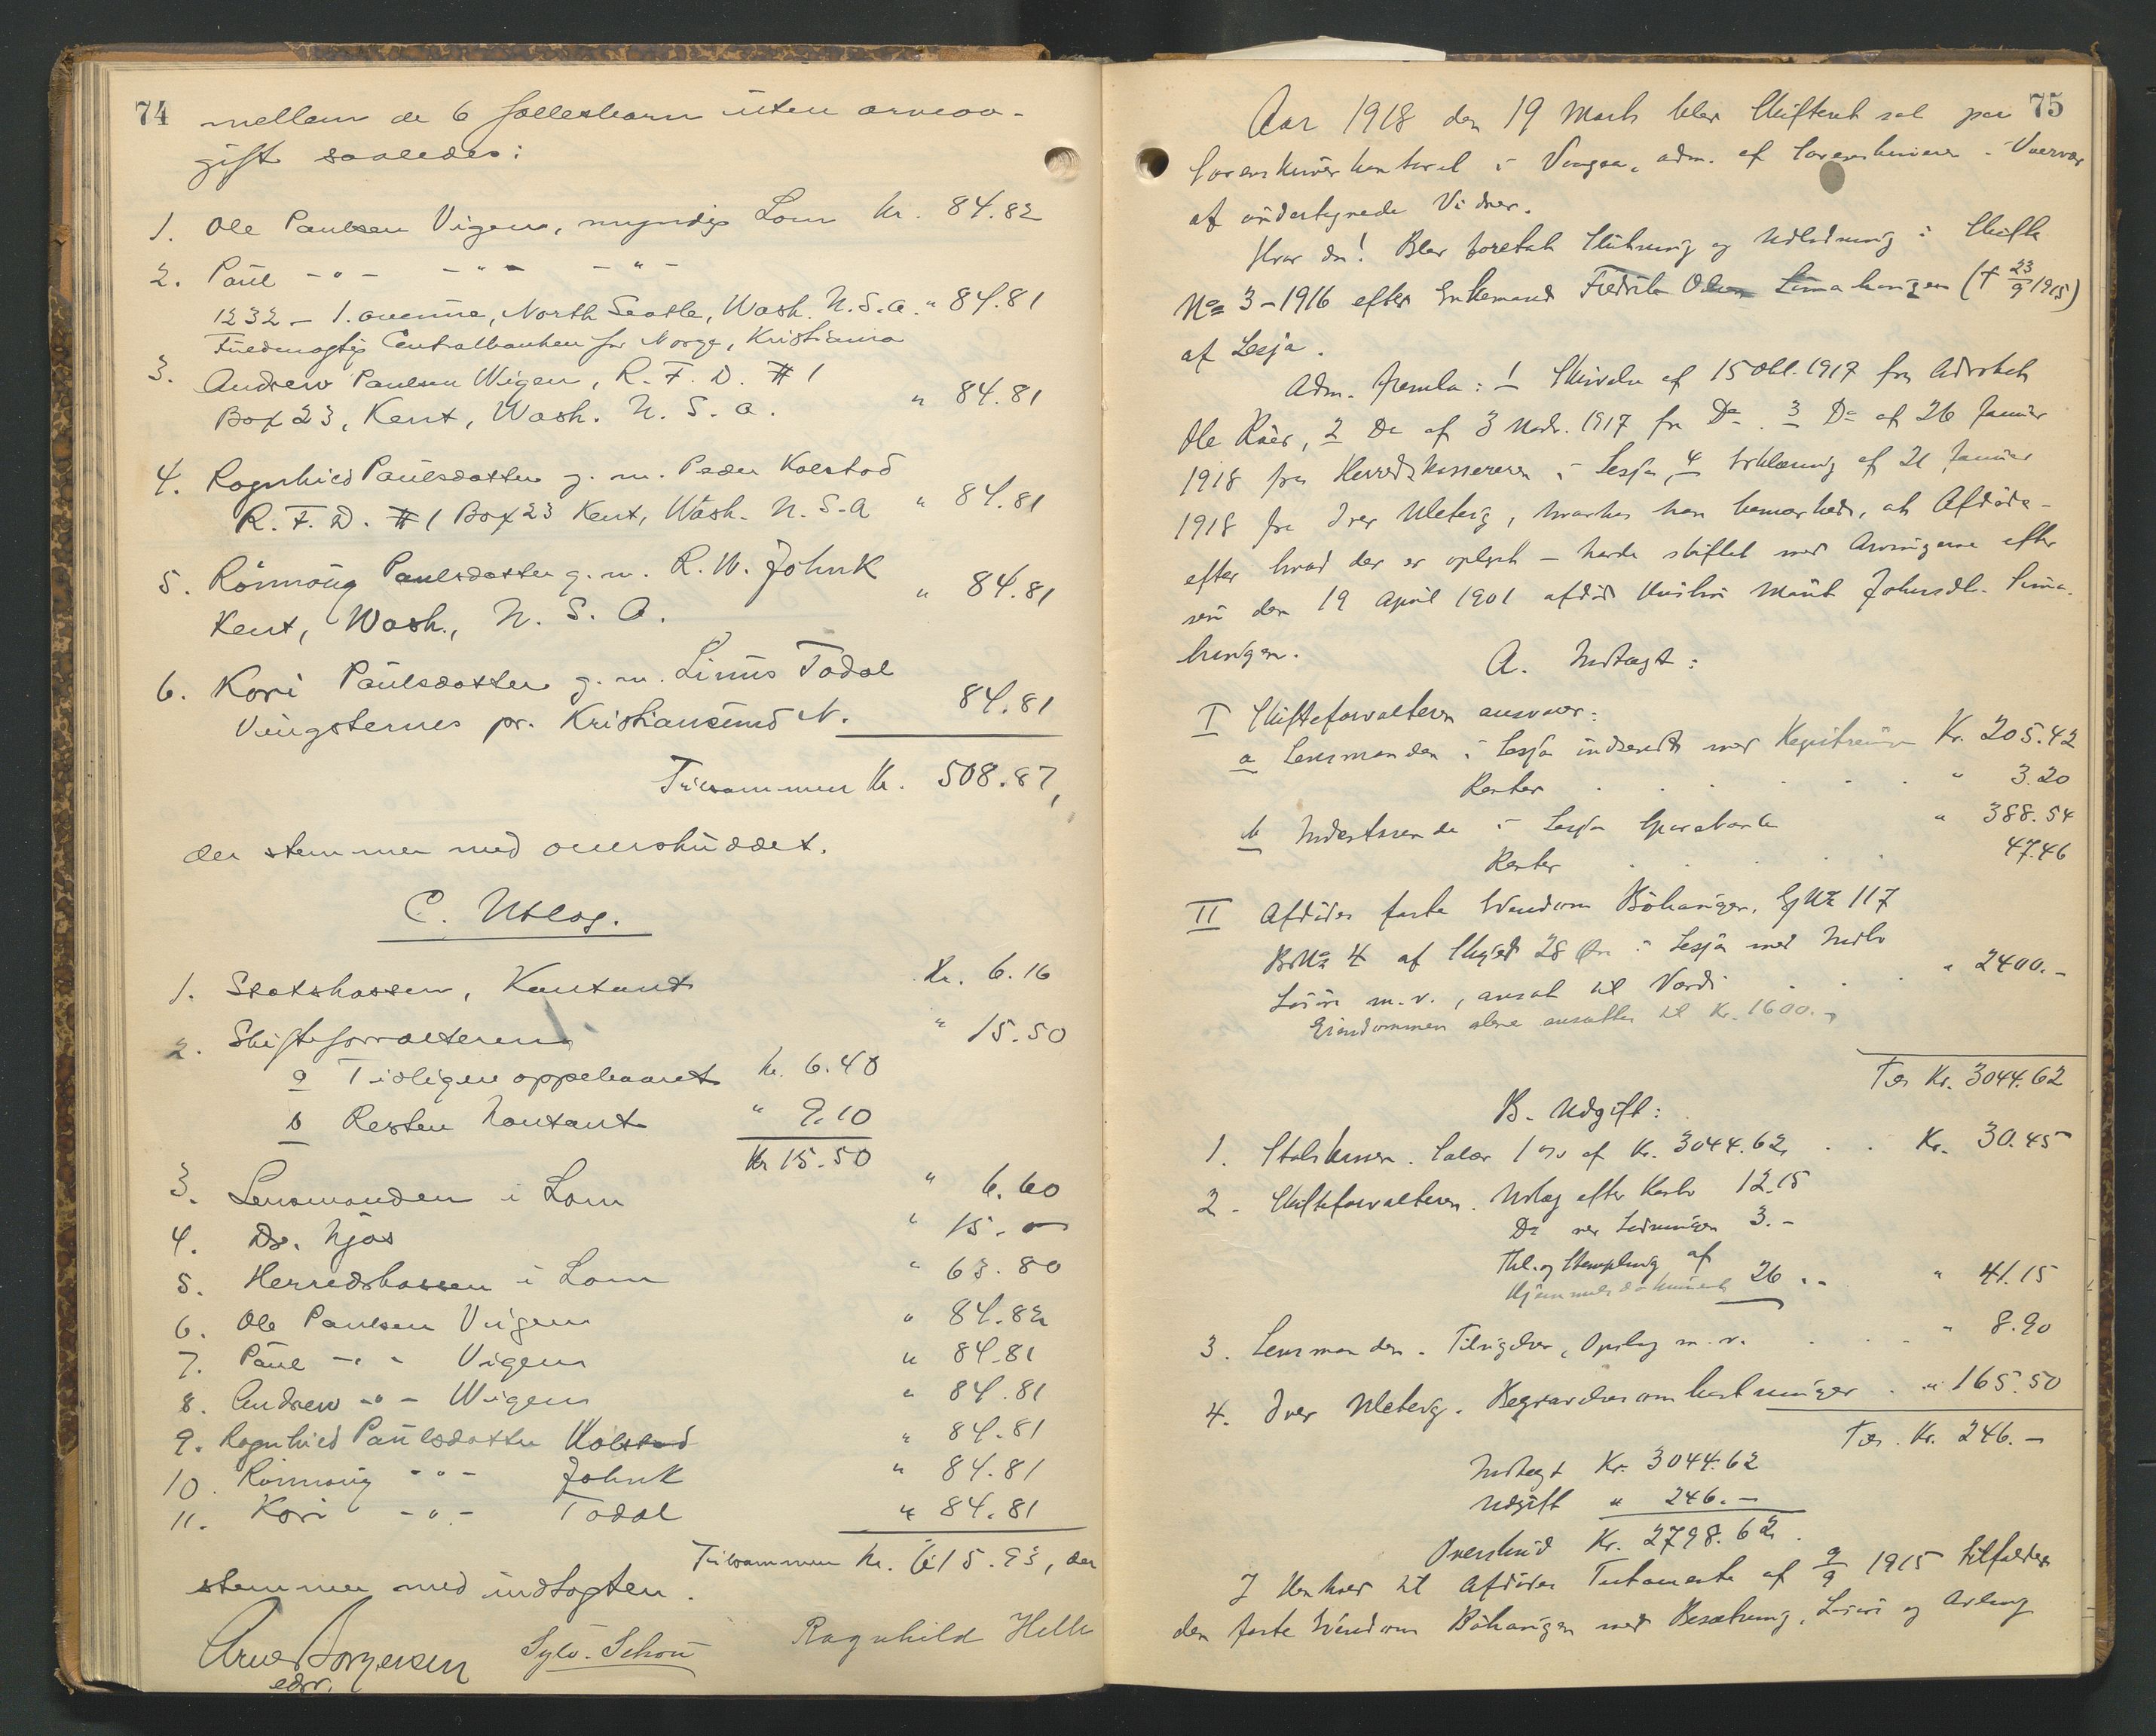 74
mellem de 6 fællesbarn uten arveav-
gift saaledes:
1. Ole Paulsen Vigen, myndig Lom kr. 84.82
2. Paul -"- -"- -"-
1232 - 1. avenue, North Seatle, Wash. U.S.a. " 84.81
Fuldmægtig Centralbanken for Norge, Kristiania
3. Andrew Paulsen Wigen, R.F.D. #1
Box 23, Kent, Wash. U.S.a. " 84.81
4. Ragnhild Paulsdatter g.m. Peder Kolstad
R.F.D. #1 Box 23 Kent, Wash. U.S.A " 84.81
5. Rönnaug Paulsdatter g.m. R.W. Johnk
Kent, Wash., U.S.A. " 84.81
6. Kari Paulsdatter g.m. Linus Todal
Vingsternes pr. Kristiansund N. 84.81
Tilsammen kr. 508.87,
der stemmer med overskuddet.
C. Utlæg.
1. Statskassen, Kontant kr. 6.16
2. Skifteforvalteren " 15.50
a Tidligere oppebaaret kr. 6.40
b Resten kontant " 9.10
kr 15.50
3. Lensmanden i Lom " 6.60
4. Dr. Njøs " 15.-
5. Herredskassen i Lom " 63.80
6. Ole Paulsen Vigen " 84.82
7. Paul -"- Vigen " 84.81
8. Andrew -"- Wigen " 84.81
9. Ragnhild Paulsdatter Kolstad " 84.81
10. Rönnaug -"- Johnk " 84.81
11. Kari -"- Todal " 84.81
Tilsammen kr. 615.93, der
stemmer med indtægten.
Arne Borgersen Sylv. Schou Ragnhild Helle
edsv.
75
Aar 1918 den 19 Marts blev Skifteret sat paa
Sorenskriverkontoret i Vaagaa, adm. af Sorenskriveren i Nærvær
af undertegnede Vidner.
Hvor da! Blev foretat Slutning og Udlodning i Skifte
No 3-1916 efter Enkemand Fredrik Olsen Limahaugen († 23/9 1915)
af Lesja.
Adm. fremla: 1 Skrivelse af 15 Okt. 1917 fra Advokat
Ole Kæs, 2 Do af 3 Novb. 1917 fra Do. 3 Do af 26 Januar
1918 fra Herredskassereren i Lesja, 4 Erklæring af 21 Januar
1918 fra Iver Uleberg, hvorhos han bemærkede, at Afdøde -
efter hvad der er oplyst - havde skiftet med Arvingerne efter
sin den 19 April 1901 afdøde Hustru Marit Johnsdt. Lima-
haugen.
A. Indtægt:
I Skifteforvalteren ansvarer:
a Lensmanden i Lesja indsendt med Registrering Kr. 205.42
Renter " 3.20
b Indestaaende i Lesja Sparebank " 388.54
Renter 47.46
II Afdødes faste Eiendom Böhaugen, GNo 117
BNo 4 af Skyld 28 Øre i Lesja med Indbo
Løsøre m.v., ansat til Værdi " 2400.-
Eiendommen alene ansattes til Kr. 1600.-
Tils. Kr. 3044.62
B. Udgift:
1. Statskassen. Salær 1 % af Kr. 3044.62 Kr. 30.45
2. Skifteforvalteren. Utlæg efter Konto 12.15
Do ved Slutningen 3.-
Thl. og Stempling af
Hjemmelsdokument 26.- " 41.15
3. Lensmanden. Tilsigelser, Opslag m.v. " 8.90
4. Iver Uleberg. Begravelsesomkostninger " 165.50
Tils. Kr. 246.-
Indtægt Kr. 3044.62
Udgift " 246.-
Overskud Kr. 2798.62.
I Henhold til Afdødes Testamente af 9/9 1915 tilfalder
den faste Eiendom Böhaugen med Besætning, Løsøre og Avling